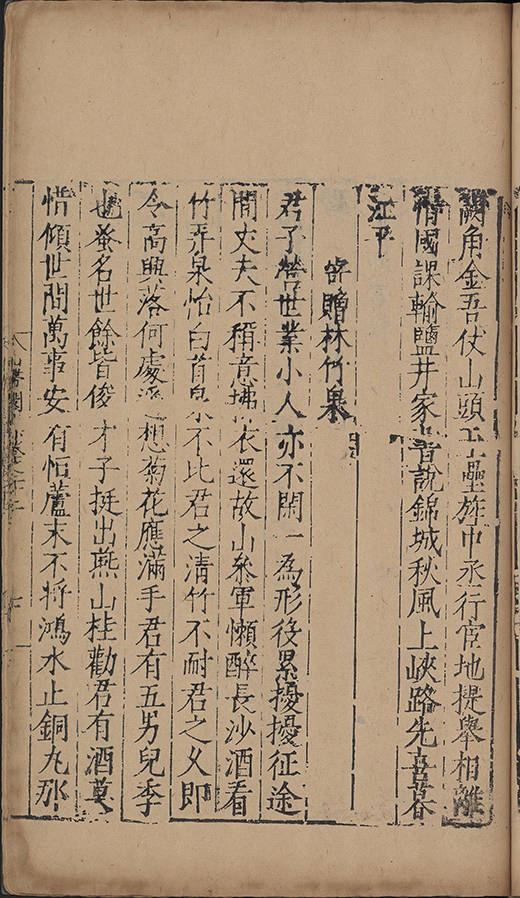 角金吾仗山頭玉壘旌中丞行宮地提舉相離
情國課輸鹽井家音說錦城秋風上峽路先喜暮
江平
寄贈林竹泉
君子營世業小人亦不閑一為形役累擾擾征途
間丈夫不稱意拂衣還故山參軍懶醉長沙酒看
竹弄泉怡白首泉不比君之清竹不耐君之久即
今高興落何處遙想菊花應滿手君有五男兒季
也蚤名世餘皆俊才子挺出燕山桂勸君有酒莫
惜傾世間萬事安有恆蘆末不將鴻水止銅丸那